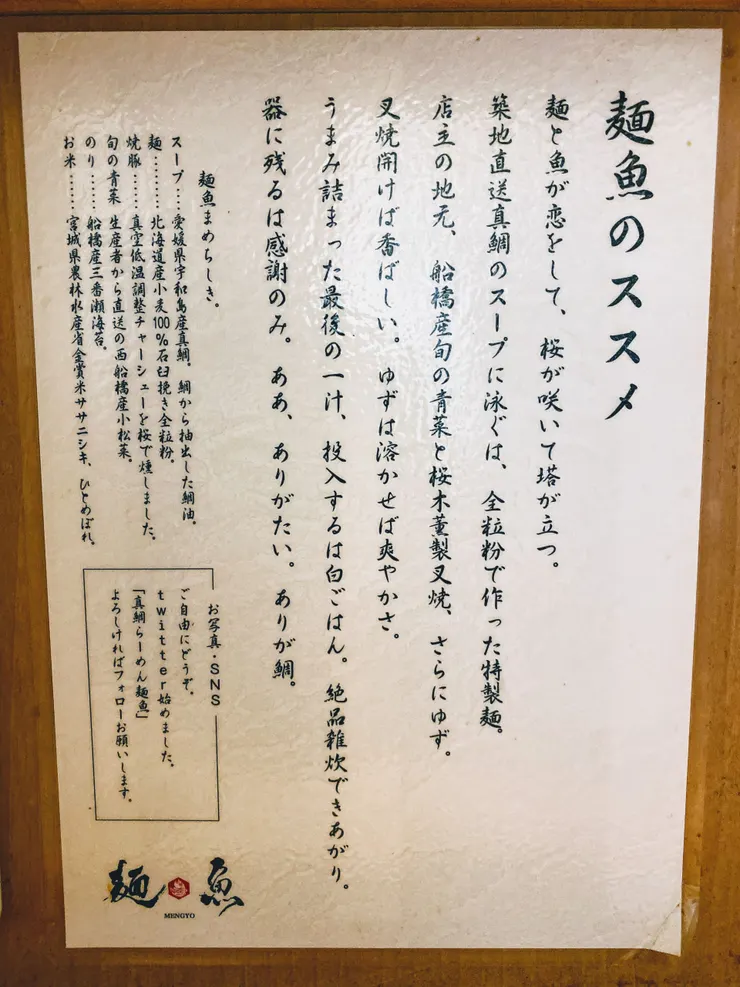 麺魚のススメ
麺と魚が恋をして、桜が咲いて塔が立つ。
築地直送真鯛のスープに泳ぐは、全粒粉で作った特製麺。
店主の地元、船橋産旬の青菜と桜木薫製叉焼、さらにゆず。
叉焼開けば香ばしい。ゆずは溶かせば爽やかさ。
うまみ詰まった最後の一汁、投入するは白ごはん。絶品雑炊できあがり。
器に残るは感謝のみ。ああ、ありがたい。ありが鯛。
麺魚まめちしき。
スープ…愛媛県宇和島産真鯛。鯛から抽出した鯛油。
麺………北海道産小麦100%石臼挽き全粒粉。
焼豚……真空低温調整チャーシューを桜で燻しました。
旬の青菜 生産者から直送の西船橋産小松菜。
のり……船橋産三番瀬海苔。
お米……宮城県農林水産省金賞米ササニシキ、ひとめぼれ。
お写真・SNS
ご自由にどうぞ。
twitter始めました。
「真鯛らーめん麺魚」
よろしければフォローお願いします。
麺魚
MENGYO